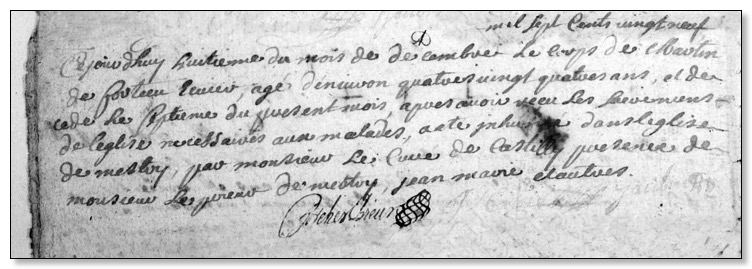 mil sept cents vingt neuf
Ejourdhuy huitieme du mois de decembre Le corps de Martin
de Ecuier, agé d'environ quatres vingt quatres ans, et de
cede Le septieme du present mois, apres avoir receu Les sacremens
de Leglise necessaires aux malades, a ete inhumé dans Leglise
de mestry, par monsieur Le Curé de Castilly presence de
monsieur Le prieur de mestry, jean marie et autres.